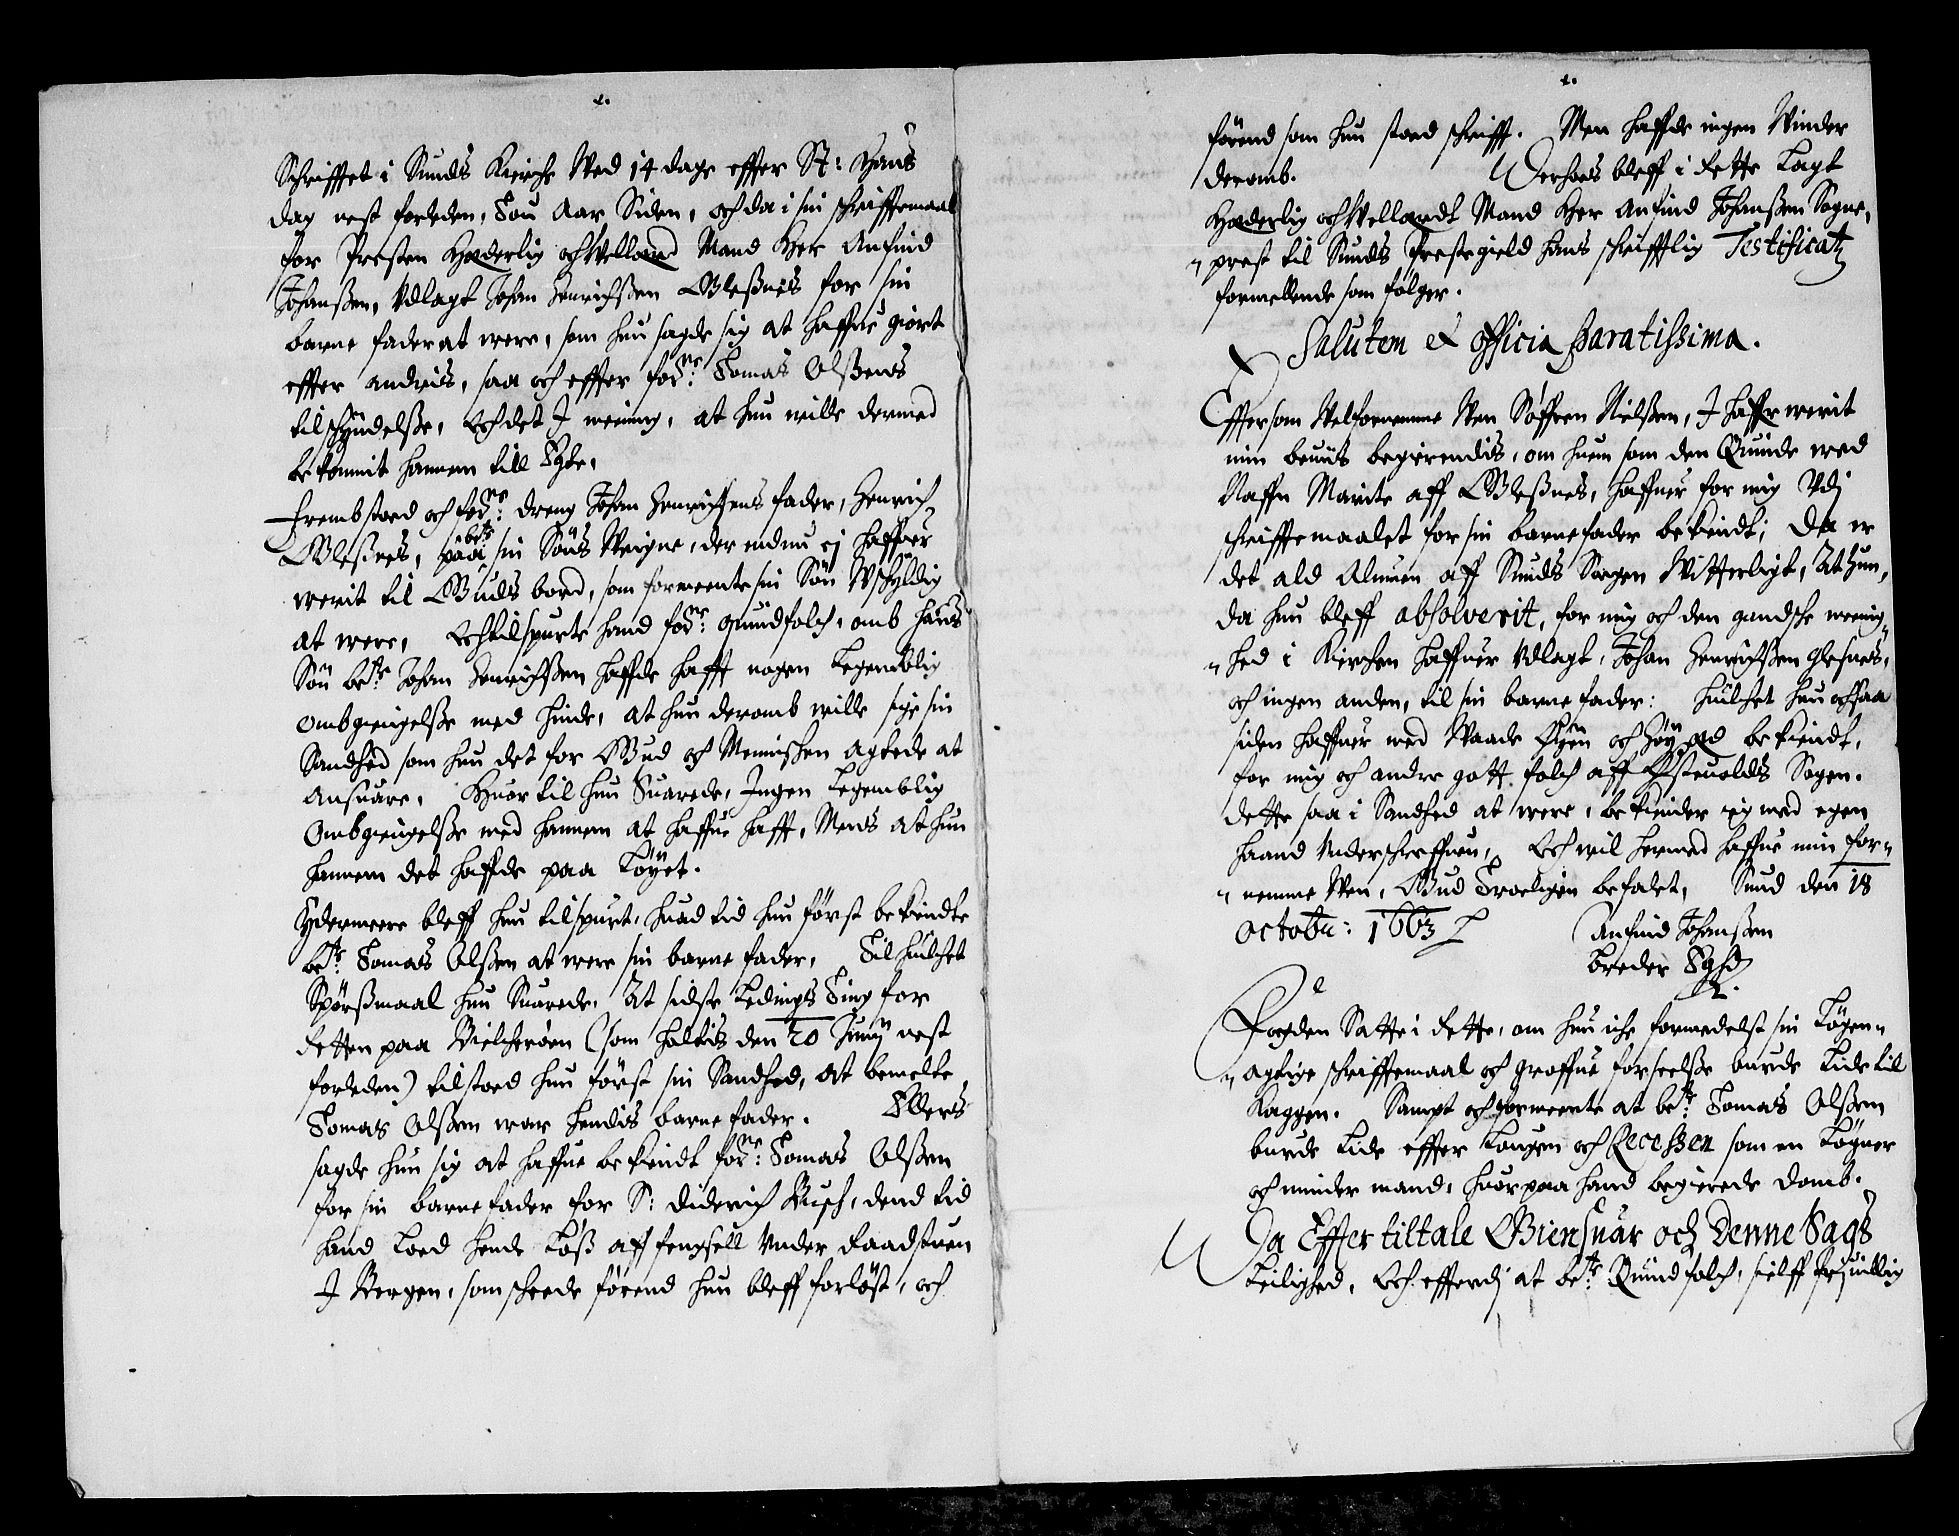 Schrifftet i Sunds Kierche Ved 14 dage effter St: Hans
dag nest forleden, Tou Aar Siden, och da i sin schrifftemaal
for Presten Hæderlig och Vellærd Mand Her Anfind
Johanßen, Udlagt Johan Henrichßen Gleßnes for sin
barne fader at were, som hun sagde sig at haffue giort
effter andris, saa och effter forne: Tomas Olßens
tilschyndelße, Och det J meining, at hun wille dermed
bekommit hannem till Egte,
Frembstoed och forne: dreng Johan Henrichsens fader, Henrich
Gleßnes, paa bete sin Søns Veigne, der endnu ej haffuer
werit til Guds bord, som formeente sin Søn Uschyldig
at were, Och tilspurte hand forne: quindfolch, omb hans
Søn bete: Johan Henrichßen haffde hafft nogen Legemblig
ombgiengelße med hinde, at hun deromb wille sige sin
Sandhed som hun det for Gud och Mennischen agtede at
ansuare, Huor til hun Suarede, Ingen Legemblig
Ombgiengelße med hannem at haffue hafft, Mens at hun
hannem det haffde paa Løyet.
Ydermeere bleff hun tilspurt, huad tid hun først bekiendte
bete: Tomas Olßen at were sin barne fader, Til huilchet
Spørßmaal hun Suarede, At sidste Ledings Ting for
Retten paa Bielcherøen (som holtis den 20 Junij nest
forleden) tilstoed hun først sin Sandhed, at bemelte
Tomas Olßen war hendis barne fader. Ellers
sagde hun sig at haffue bekiendt forne: Tomas Olßen
for sin barne fader for S: Diderich Busch, dend tid
hand Loed hende Løß aff fengsell Under Raadstuen
J Bergen, som scheede førend hun bleff forløst, och
førend som hun stoed schrifft. Men haffde ingen Vinder
deromb. Derhoes bleff i Rette Lagt
Hæderlig och Vellærdt Mand Her Anfind Johanßen Sogne,
prest til Sunds Prestegield hans schrifftlig Testificatz
formellende som følger.
Salutem & officia paratissima.
Effter som Velfornemme Ven Søffren Nielßen, J haffr werit
min beuiis begierendis, om huem som den Quinde wed
Naffn Marite aff Gleßnes, haffuer for mig Udj
schrifftemaalet for sin barnefader bekiendt; Da er
det ald Almuen aff Sunds Sogen Vitterligt, At hun,
da hun bleff absolverit, for mig och den gandsche meenig
hed i Kierchen haffuer Udlagt, Johan Henrichßen Glesnes,
och ingen anden, til sin barnefader: huilchet hun ochsaa
siden haffuer med Vaade Øyen och høy æd bekiendt,
for mig och andre gott folch aff Østeuolds Sogen.
dette saa i Sandhed at were, bekiender ieg med egen
haand Underschreffuen, Och wil hermed haffue min for-
nemme Ven, Gud Troeligen befalet, Sund den 18
octobr: 1663
Anfind Johanßen
Breder Egh
Fogden Satte i Rette, om hun iche formedelst sin Løgen-
agtige schrifftemaal och groffue forseelße burde Lide til
Kaggen. Sampt och formeente at bete: Tomas Olßen
burde Lide effter Lougen och Recessen som en Løgner
och minder mand, huor paa hand begierede Domb.
Da Effter tiltale Giensuar och Denne Sags
Leilighed, Och efterdj at bete: Quindfolch, sielff frjuillig